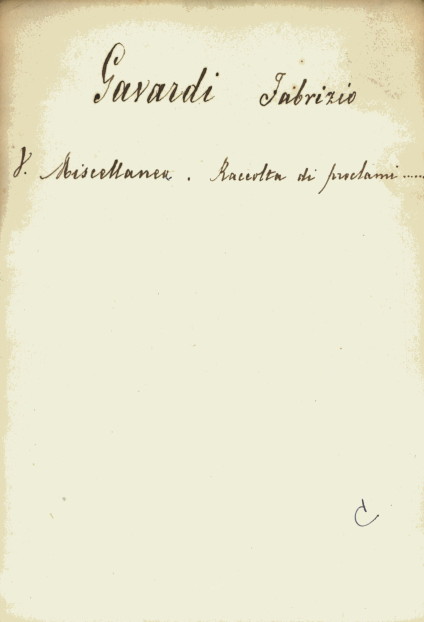 Gavardi Fabrizio
V. Miscellanea. Raccolta di proclami......
C